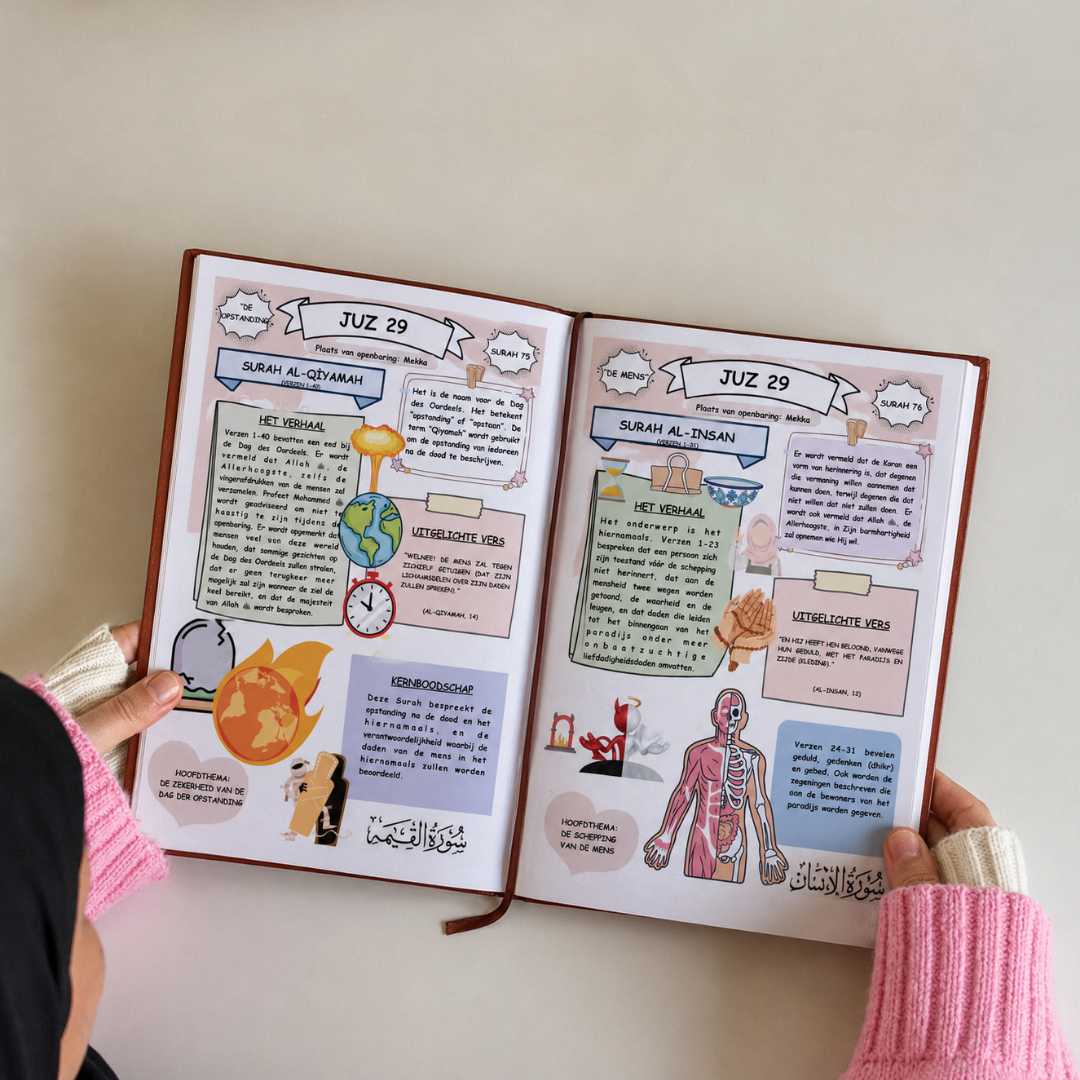 "DE
OPSTANDING
JUZ 29
Plaats van openbaring: Mekka
SURAH 75
SURAH AL-QİYAMAH
(VERZEN 1-40)
Het is de naam voor de Dag
des Oordeels. Het betekent
"opstanding" of "opstaan". De
term "Qiyamah" wordt gebruikt
om de opstanding van iedereen
na de dood te beschrijven.
HET VERHAAL
Verzen 1-40 bevatten een eed bij
de Dag des Oordeels. Er wordt
vermeld dat Allah ﷻ, de
Allerhoogste, zelfs de
vingerafdrukken van de mensen zal
verzamelen. Profeet Mohammed ﷺ
wordt geadviseerd om niet te
haastig te zijn tijdens de
openbaring. Er wordt opgemerkt dat
mensen veel van deze wereld
houden, dat sommige gezichten op
de Dag des Oordeels zullen stralen,
dat er geen terugkeer meer
mogelijk zal zijn wanneer de ziel de
keel bereikt, en dat de majesteit
van Allah ﷻ wordt besproken.
UITGELICHTE VERS
"WELNEE! DE MENS ZAL TEGEN
ZICHZIELF GETUIGEN (DAT ZIJN
LICHAAMSDELEN OVER ZIJN DADEN
ZULLEN SPREKEN)."
(AL-QIYAMAH, 14)
KERNBOODSCHAP
Deze Surah bespreekt de
opstanding na de dood en het
hiernamaals, en de
verantwoordelijkheid waarbij de
daden van de mens in het
hiernamaals zullen worden
beoordeeld.
HOOFDTHEMA:
DE ZEKERHEID VAN DE
DAG DER OPSTANDING
سُورَةُ القِيَمَةِ
"DE MENS"
JUZ 29
Plaats van openbaring: Mekka
SURAH 76
SURAH AL-INSAN
(VERZEN 1-31)
Er wordt vermeld dat de Koran een
vorm van herinnering is, dat degenen
die vermaning willen aannemen dat
kunnen doen, terwijl degenen die dat
niet willen dat niet zullen doen. Er
wordt ook vermeld dat Allah ﷻ, de
Allerhoogste, in Zijn barmhartigheid
zal opnemen wie Hij wil.
HET VERHAAL
Het onderwerp is het
hiernamaals. Verzen 1-23
bespreken dat een persoon zich
zijn toestand vóór de schepping
niet herinnert, dat aan de
mensheid twee wegen worden
getoond, de waarheid en de
leugen, en dat daden die leiden
tot het binnengaan van het
paradijs onder meer
onbaatzuchtige
liefdadigheidsdaden omvatten.
UITGELICHTE VERS
"EN HIJ HEEFT HEN BELOOND, VANWEGE
HUN GEDULD, MET HET PARADIJS EN
ZIJDE (KLEDING)."
(AL-INSAN, 12)
Verzen 24-31 bevelen
geduld, gedenken (dhikr)
en gebed. Ook worden de
zegeningen beschreven die
aan de bewoners van het
paradijs worden gegeven.
HOOFDTHEMA:
DE SCHEPPING
VAN DE MENS
سُورَةُ الإِنسَانِ